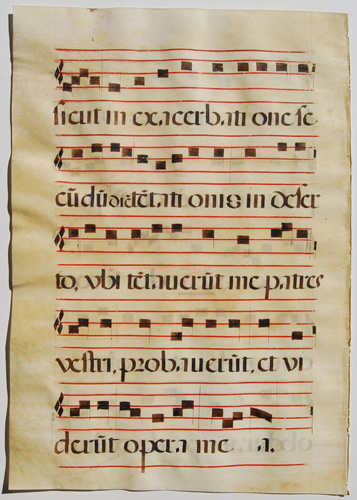 sicut in exacerbati one se
cū dū diē tētati onis in deser
to, vbi tētauerūt me patres
vestri, probauerūt, et vi
derūt opera me a.